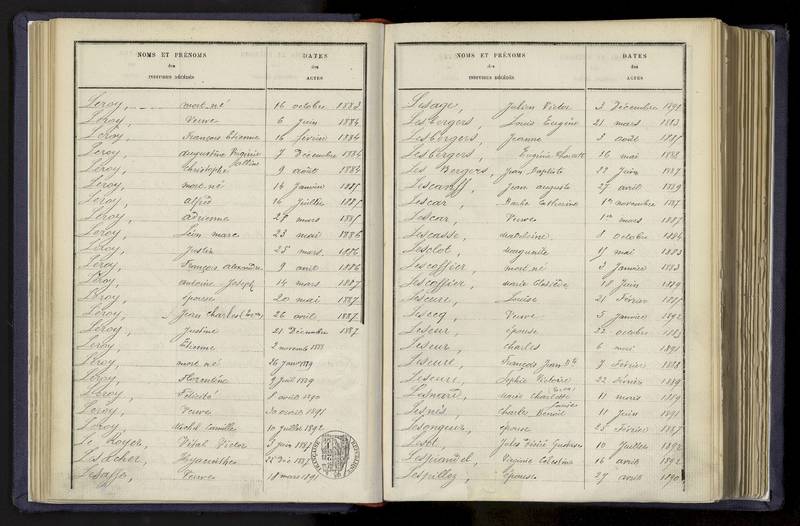 NOMS ET PRÉNOMS DATES
des des
INDIVIDUS DÉCÉDÉS ACTES
Leroy, mort né 16 octobre 1883
Leroy, Veuve 6 juin 1884
Leroy, François Etienne 16 février 1884
Leroy, Augustine Virginie 7 Décembre 1884
Leroy, Christophe 9 août 1884
Leroy, mort né 14 Janvier 1885
Leroy, Alfred 16 Juillet 1885
Leroy, adrienne 27 mars 1885
Leroy, Léon marc 23 mai 1886
Leroy, Justin 25 mars 1886
Leroy, François alexandre 9 avril 1886
Leroy, antoine Joseph 14 mars 1887
Leroy, épouse 20 mai 1887
Leroy, Jean Charles 26 avril 1887
Leroy, Justine 21 Décembre 1887
Leroy, Etienne 2 novembre 1888
Leroy, mort né 26 Janv 1889
Leroy, Florentine 9 Juil 1889
Leroy, Félicité 8 avril 1890
Leroy, Veuve 30 août 1891
Leroy, Camille 10 juillet 1892
Le Royer, Vital Victor 3 juin 1887
Hyacinthe 22 Déc 1887
Lesaffe, Veuve 18 mars 1891
RÉPUBLIQUE FRANÇAISE
NOMS ET PRÉNOMS DATES
des des
INDIVIDUS DÉCÉDÉS ACTES
Lesage, Julien Victor 3 Décembre 1891
Lesbergers, Louis Eugène 21 mars 1883
Lesbergers, Jeanne 3 août 1885
Lesbergers, Eugénie 16 mai 1888
Les Bergers, Jean Baptiste 22 Juin 1887
Lescanff, Jean auguste 27 avril 1889
Lescar, Catherine 1er novembre 1885
Lescar, Veuve 1er mars 1887
Lescasse, 8 octobre 1884
Lesclot, marguerite 17 mai 1883
Lescoffier, mort né 3 Janvier 1883
Lescoffier, marie 18 Juin 1889
Lescure, Louise 21 Février 1885
Lescq, Veuve 5 janvier 1892
Leseur, épouse 22 octobre 1883
Leseur, charles 6 mai 1891
Leseure, François Jean Bte 7 Février 1888
Leseure, Sophie Victoire 22 Février 1889
marie Charlotte 11 mars 1889
Lesnés, Charles Benoit 11 juin 1891
Lesongeur, épouse 25 Février 1887
Jules Désiré Gustave 10 Juillet 1892
Virginie Célestine 16 avril 1892
Lespillez, Epouse 27 avril 1890